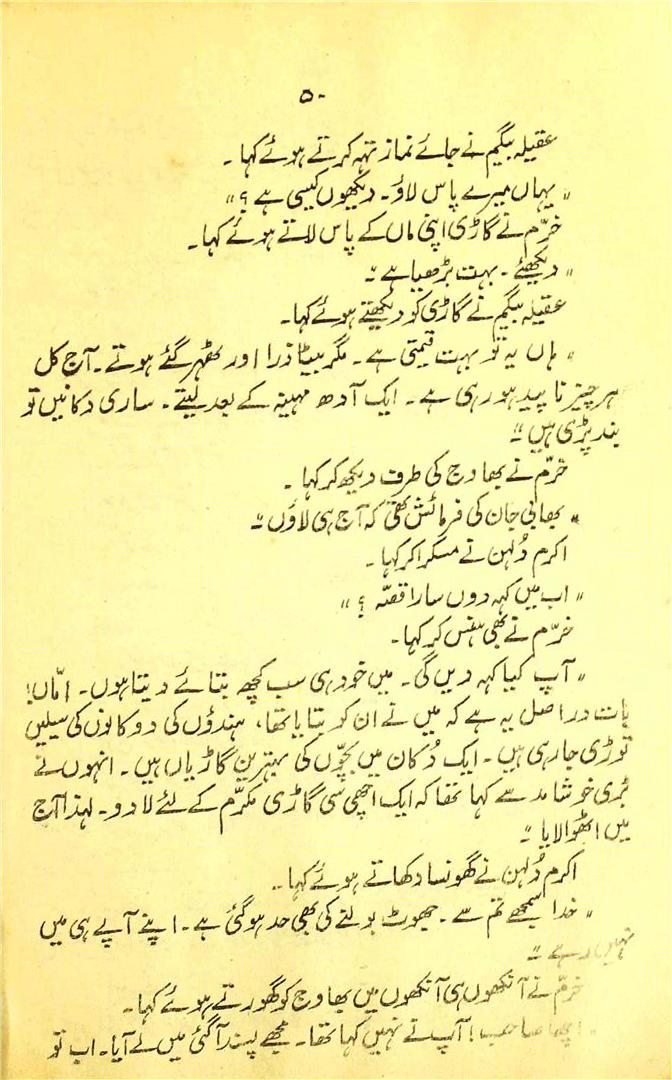 ۵۰
عقیلہ بیگم نے جائے نماز تہہ کرتے ہوئے کہا۔
"یہاں میرے پاس لاؤ۔ دیکھوں کیسی ہے؟"
خرّم نے گاڑی اپنی ماں کے پاس لاتے ہوئے کہا۔
"دیکھئے۔ بہت بڑھیا ہے"۔
عقیلہ بیگم نے گاڑی کو دیکھتے ہوئے کہا۔
"ہاں یہ تو بہت قیمتی ہے۔ مگر بیٹا ذرا اور ٹھہر گئے ہوتے۔ آج کل
ہر چیز ناپید ہو رہی ہے۔ ایک آدھ مہینہ کے بعد لیتے۔ ساری دکانیں تو
بند پڑی ہیں"۔
خرّم نے بھاوج کی طرف دیکھ کر کہا۔
"بھابی جان کی فرمائش تھی کہ آج ہی لاؤں"۔
اکرم دُلہن نے مسکرا کر کہا۔
"اب میں کہہ دوں سارا قصّہ؟"
خرّم نے بھی ہنس کر کہا۔
"آپ کیا کہہ دیں گی۔ میں خود ہی سب کچھ بتائے دیتا ہوں۔ امّاں!
بات دراصل یہ ہے کہ میں نے ان کو بتایا تھا، ہندؤں کی دوکانوں کی سیلیں
توڑی جا رہی ہیں۔ ایک دُکان میں بچّوں کی بہترین گاڑیاں ہیں۔ انہوں نے
بڑی خوشامد سے کہا تھا کہ ایک اچھی سی گاڑی مکرّم کے لئے لا دو۔ لہذا آج
میں اٹھوا لایا"۔
اکرم دُلہن نے گھونسا دکھاتے ہوئے کہا۔
"خدا سمجھے تم سے۔ جھوٹ بولنے کی بھی حد ہو گئی ہے۔ اپنے آپے ہی میں
نہیں رہے"۔
خرّم نے آنکھوں ہی آنکھوں میں بھاوج کو گھورتے ہوئے کہا۔
"اچھا صاحب! آپ نے نہیں کہا تھا۔ مجھے پسند آ گئی میں لے آیا۔ اب تو